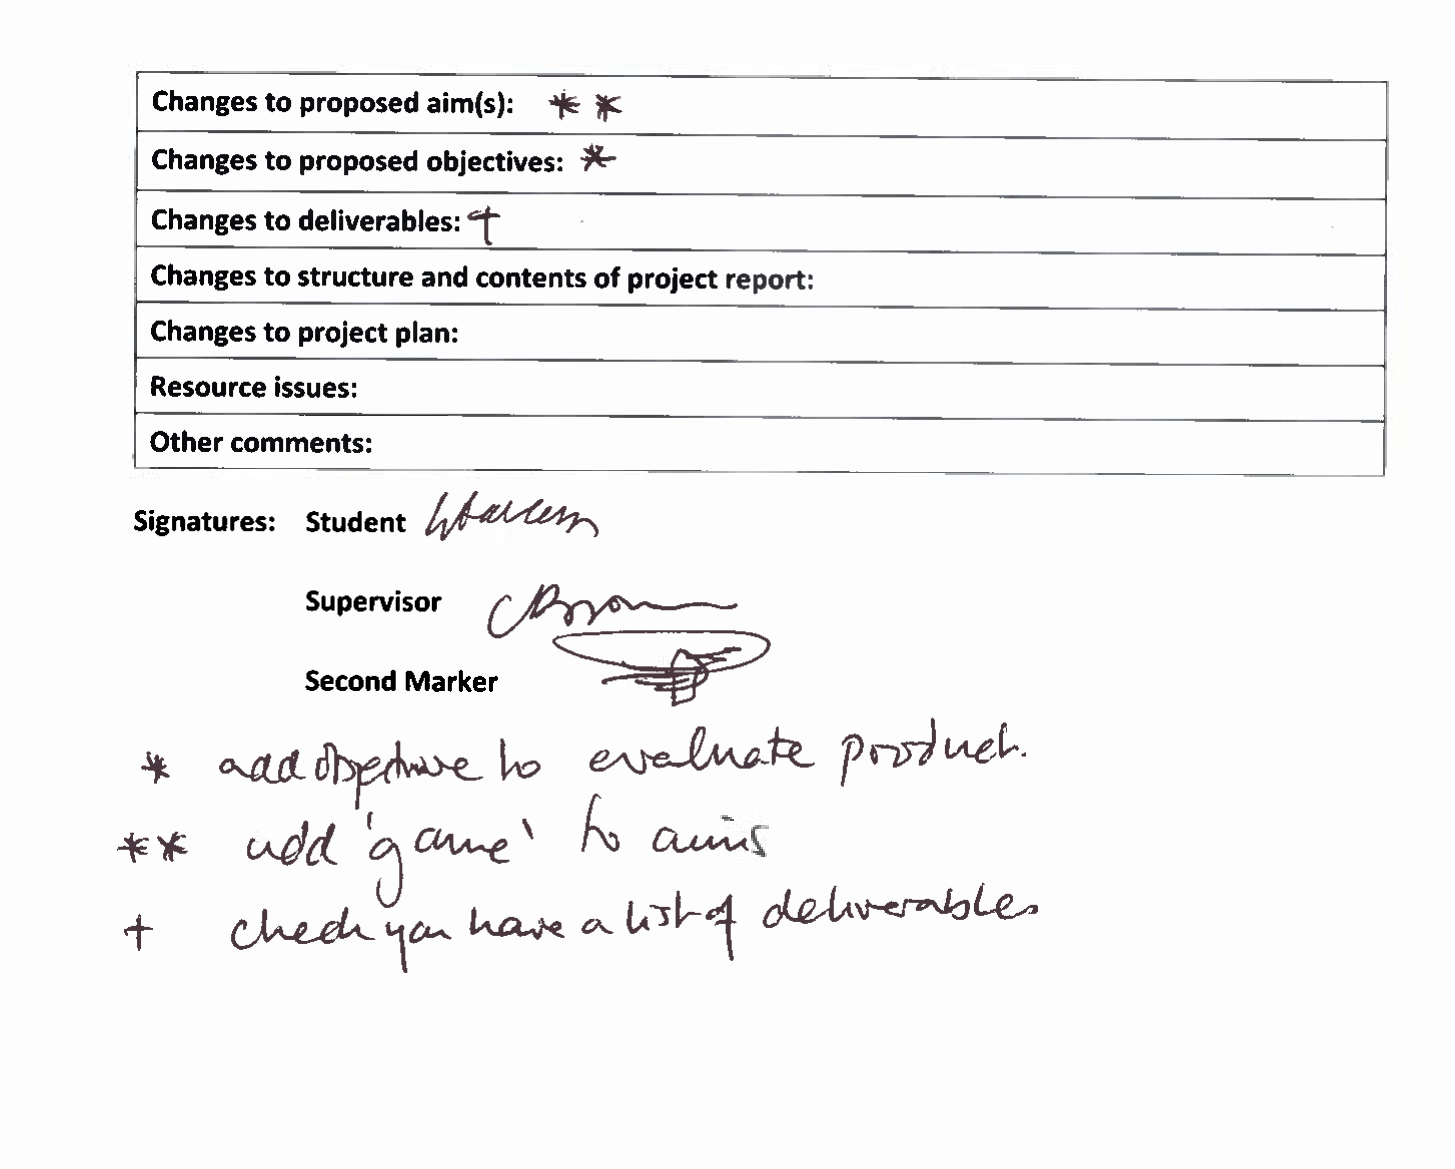 Changes to proposed aim(s): * *
Changes to proposed objectives: *
Changes to deliverables: †
Changes to structure and contents of project report:
Changes to project plan:
Resource issues:
Other comments:
Signatures: Student
Supervisor
Second Marker
* add objective to evaluate product.
** add 'game' to aims
+ check you have a list of deliverables